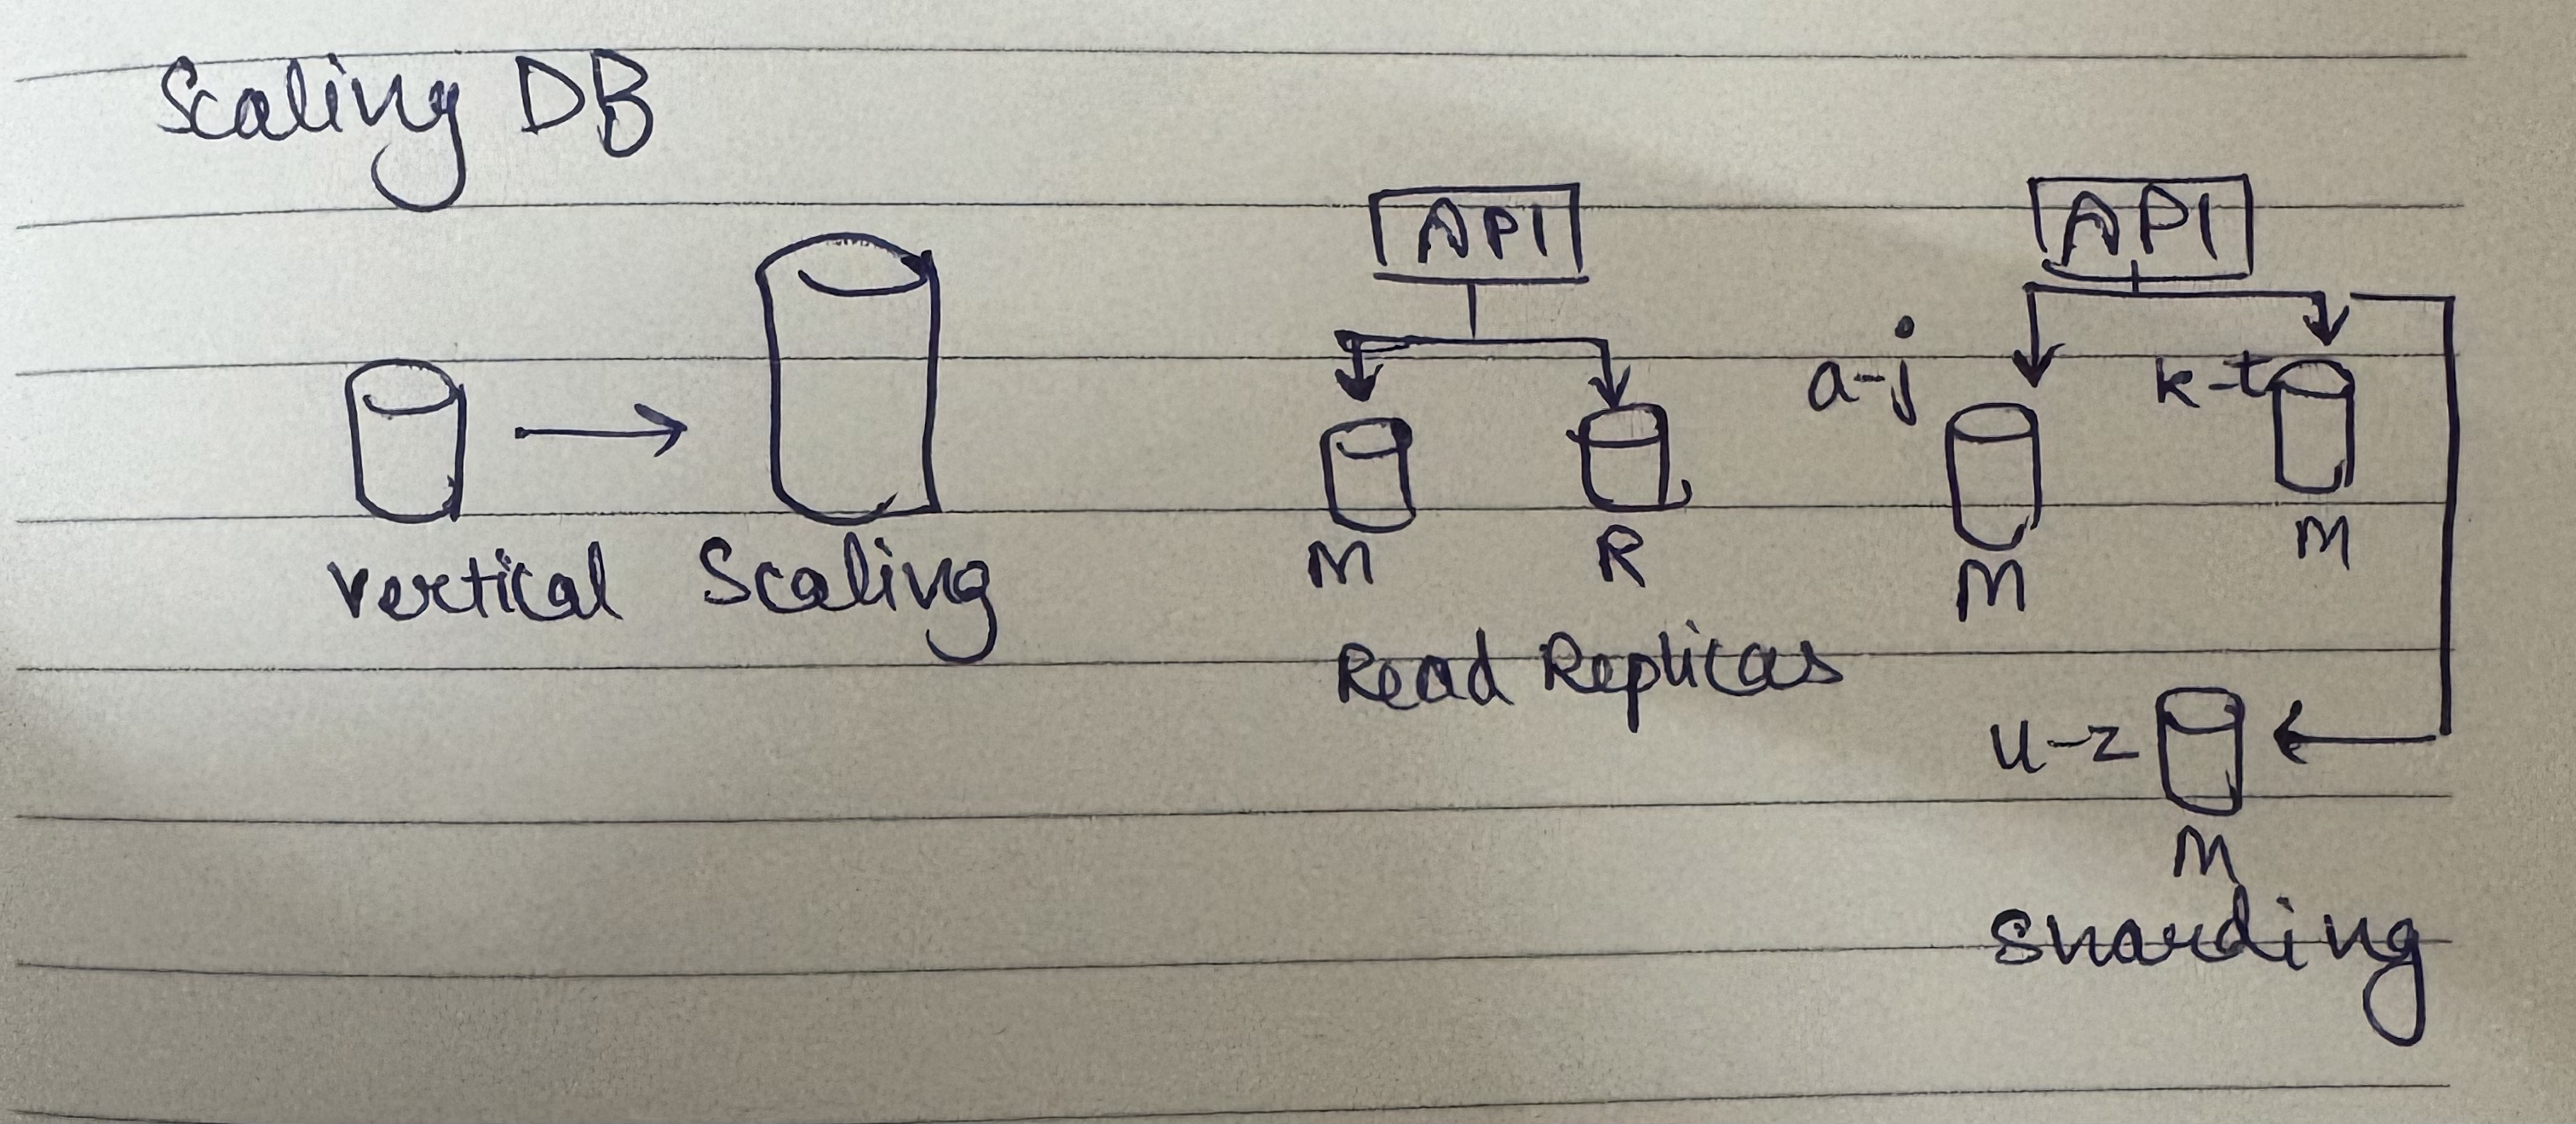 Scaling DB
Vertical Scaling
API
M
R
Read Replicas
API
a-j
M
k-t
M
u-z
M
Sharding